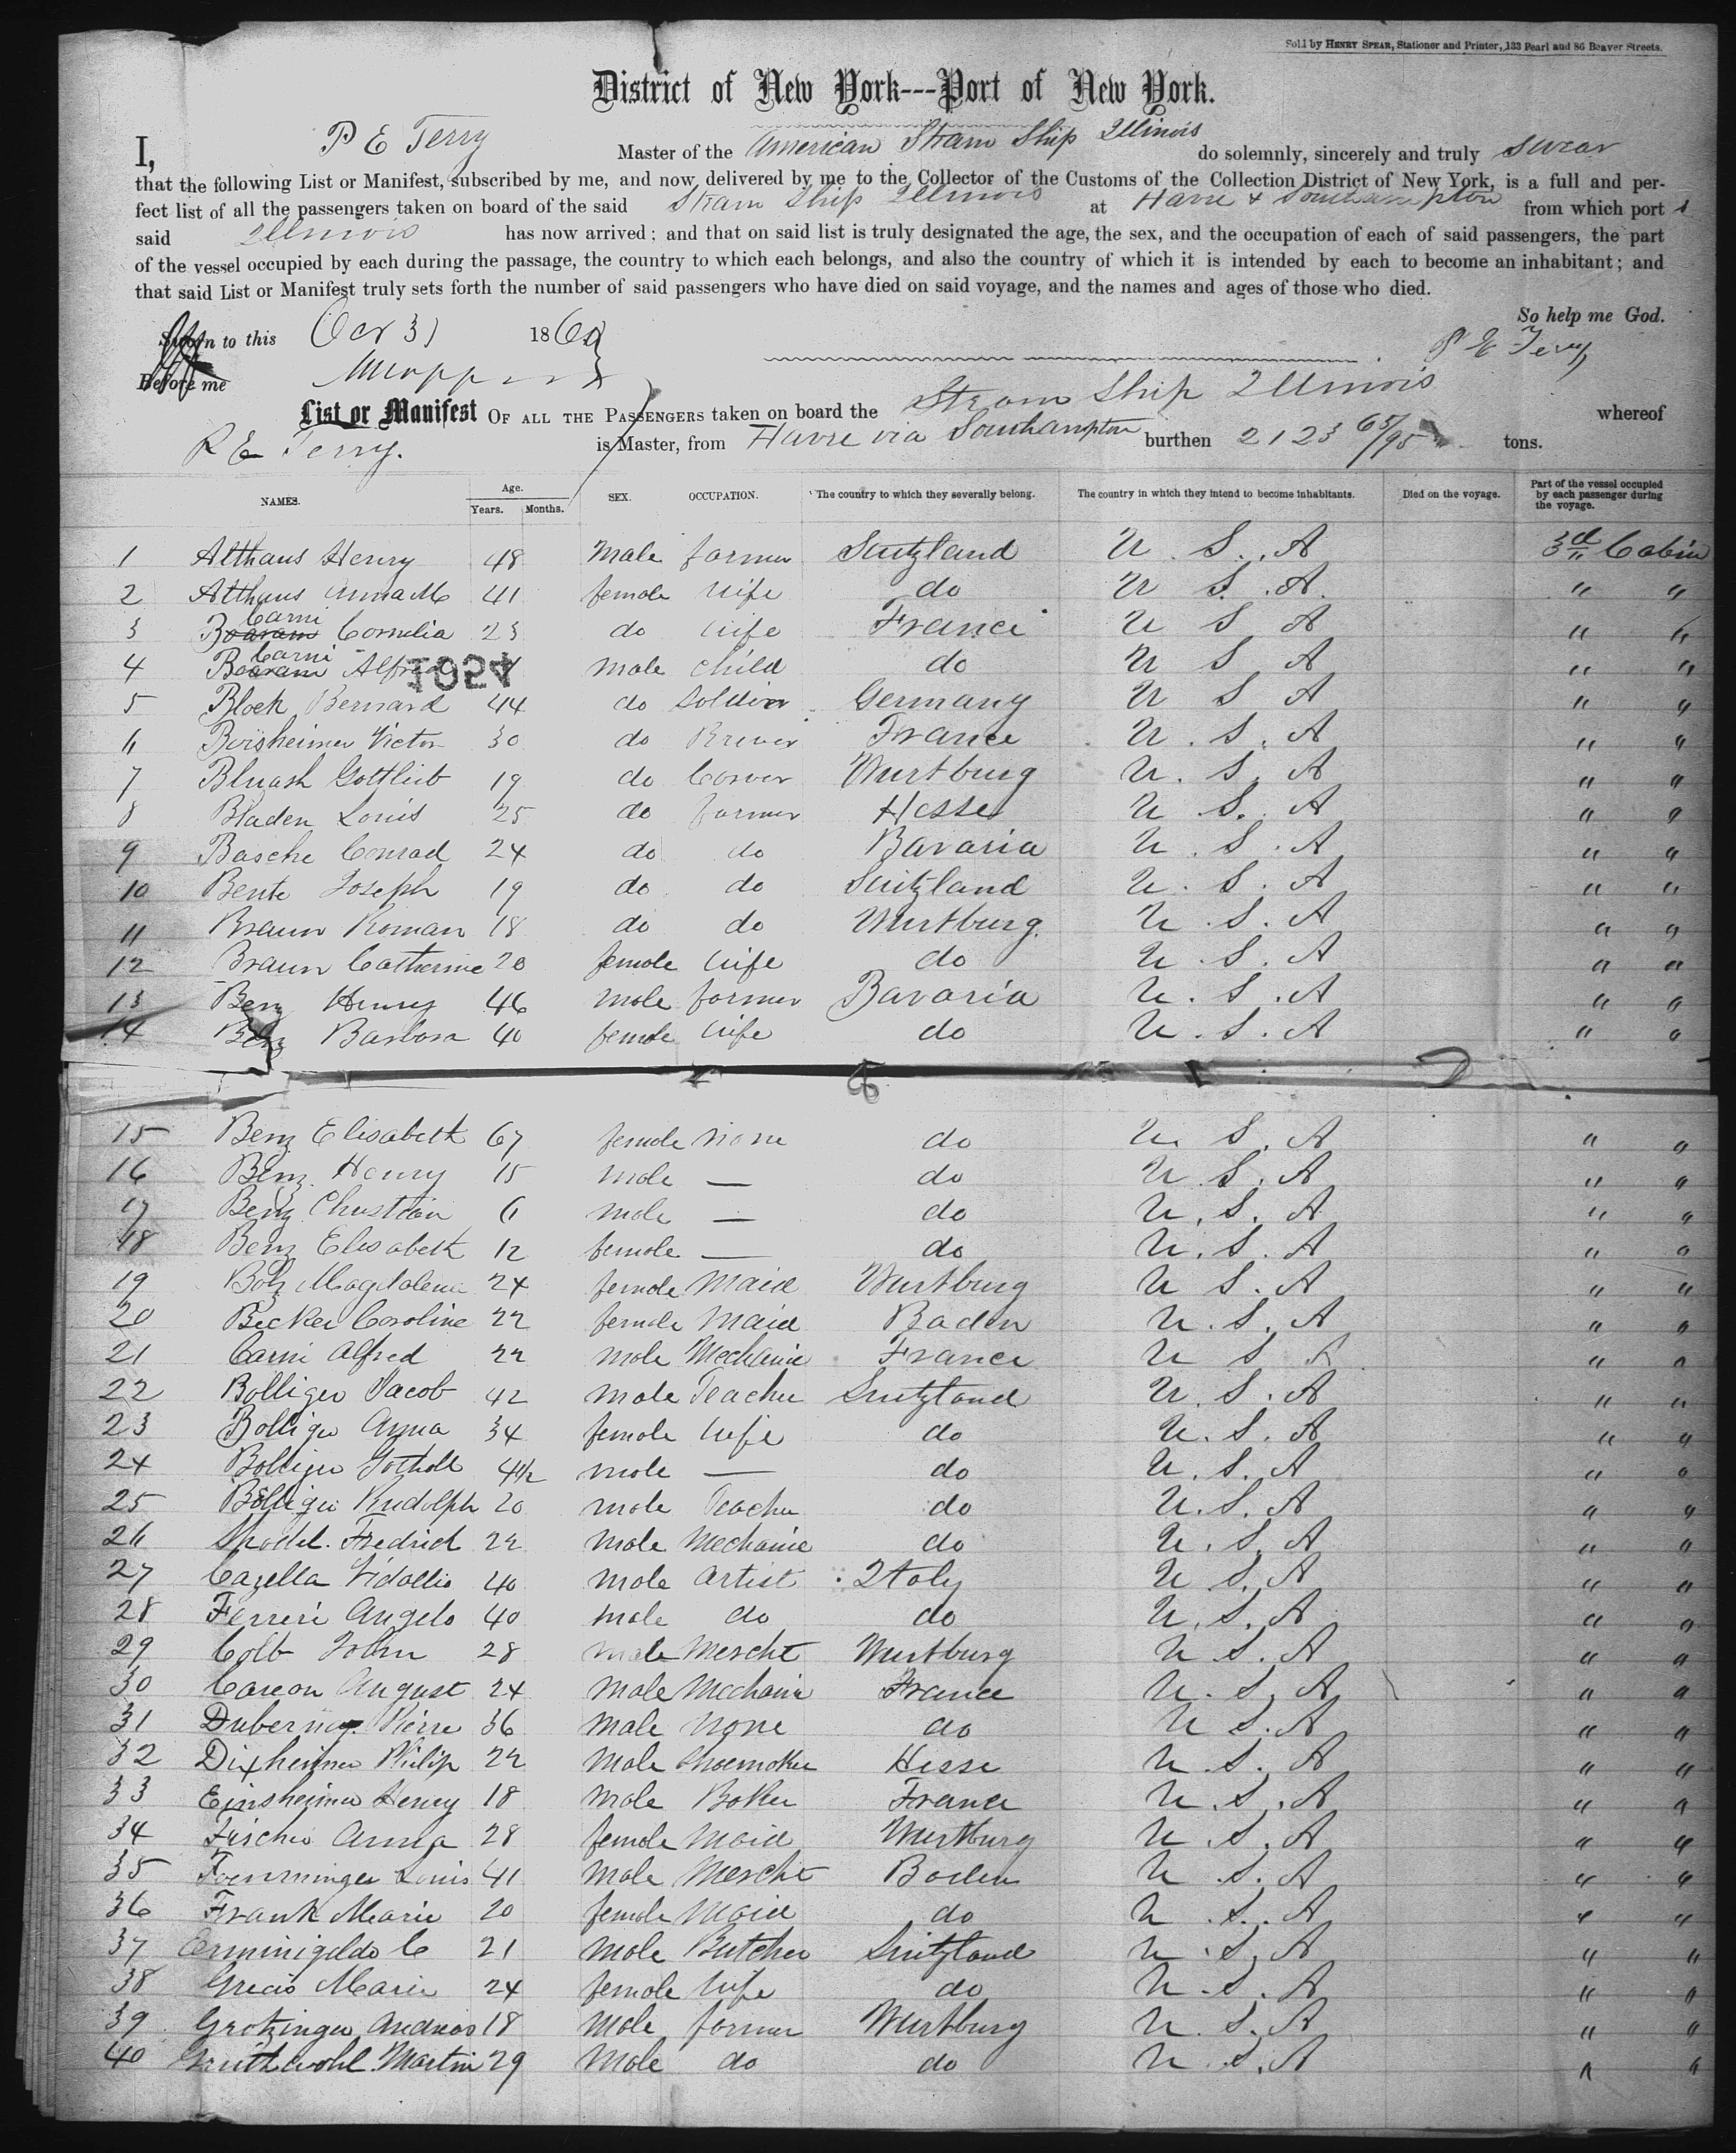 Sold by HENRY SPEAR, Stationer and Printer, 133 Pearl and 86 Beaver Streets.
District of New York---Port of New York.
I, P E Terry Master of the American Steam Ship Illinois do solemnly, sincerely and truly swear
that the following List or Manifest, subscribed by me, and now delivered by me to the Collector of the Customs of the Collection District of New York, is a full and per-
fect list of all the passengers taken on board of the said Steam Ship Illinois at Havre & Southampton from which port s
said Illinois has now arrived; and that on said list is truly designated the age, the sex, and the occupation of each of said passengers, the part
of the vessel occupied by each during the passage, the country to which each belongs, and also the country of which it is intended by each to become an inhabitant; and
that said List or Manifest truly sets forth the number of said passengers who have died on said voyage, and the names and ages of those who died.
So help me God.
Sworn to this Oct 31 186
P E Terry
Before me
List or Manifest OF ALL THE PASSENGERS taken on board the Steam Ship Illinois whereof
P E Terry. is Master, from Havre via Southampton burthen 2123 65/95 tons.
NAMES. Age. Years. Months. SEX. OCCUPATION. The country to which they severally belong. The country in which they intend to become inhabitants. Died on the voyage. Part of the vessel occupied by each passenger during the voyage.
1 Althaus Henry 48 male farmer Switzland U. S. A 3d Cabin
2 Althaus Anna M 41 female wife do U S. A. " "
3 Carni Cornelia 23 do wife France U S A " "
4 Carni male child do U S A " "
1924
5 Block Bernard 44 do Soldier Germany U S A " "
6 Boisheimer Victor 30 do Brewer France U. S. A " "
7 Bluash Gottlieb 19 do Carver Wurtburg U. S. A " "
8 Bladen Louis 25 do farmer Hesse U S. A " "
9 Basche Conrad 24 do do Bavaria U. S. A " "
10 Bente Joseph 19 do do Switzland U. S. A " "
11 Braun Roman 18 do do Wurtburg. U. S. A " "
12 Braun Catherine 20 female wife do U. S. A " "
13 Benz Henry 46 male farmer Bavaria U. S. A " "
14 Benz Barbara 40 female wife do U. S. A " "
15 Benz Elisabeth 67 female none do U. S. A " "
16 Benz Henry 15 male — do U. S. A " "
17 Benz Christian 6 male — do U. S. A " "
18 Benz Elisabeth 12 female — do U. S. A " "
19 Bolz Magdalena 24 female Maid Wurtburg U S. A " "
20 Becker Caroline 22 female Maid Baden U. S. A " "
21 Carni Alfred 22 male Mechanic France U S A " "
22 Bolliger Jacob 42 male Teacher Switzland U. S. A " "
23 Bolliger Anna 34 female wife do U. S. A " "
24 Bolliger Gotholl 4 1/2 male — do U. S. A " "
25 Bolliger Rudolph 20 male Teacher do U. S. A " "
26 Fredrich 22 male Mechanic do U. S. A " "
27 Cazella 40 male Artist Italy U S. A " "
28 Ferreri Angelo 40 male do do U. S. A " "
29 Colb John 28 male Mercht Wurtburg U S. A " "
30 Careon August 24 male Mechanic France U. S. A " "
31 Pierre 36 male none do U S. A " "
32 Dixheimer Philip 22 male Shoemaker Hesse U. S. A " "
33 Einsheimer Henry 18 male Baker France U. S. A " "
34 Fischer Anna 28 female Maid Wurtburg U. S. A " "
35 Foenminger Louis 41 male Mercht Baden U. S. A " "
36 Frank Marie 20 female Maid do U. S. A " "
37 Erminigeldo C 21 male Butcher Switzland U. S. A " "
38 Marie 24 female wife do U. S. A " "
39 Grotzinger Andreas 18 male farmer Wurtburg U. S. A " "
40 Martin 29 male do do U. S. A " "